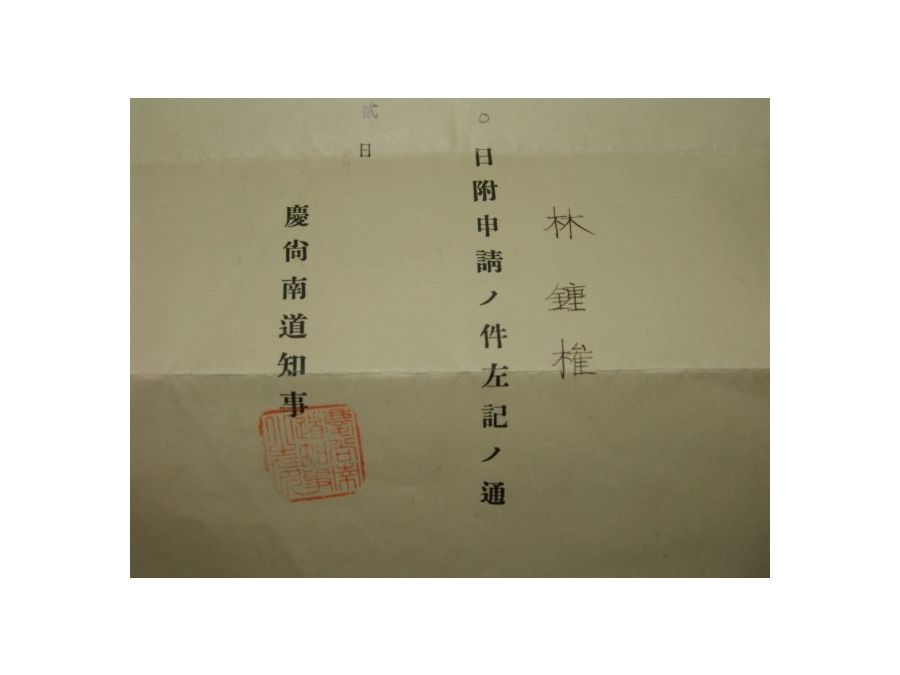 林鍾権
〇日附申請ノ件左記ノ通
日
慶尙南道知事
慶尙南道知事